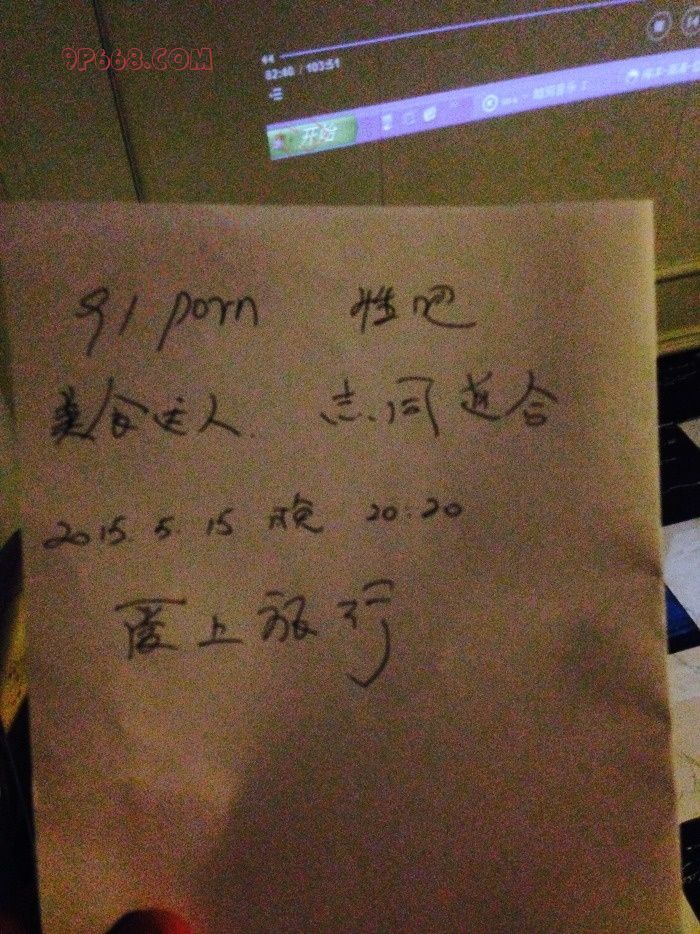 9P668.COM
44
82:40 / 103:51
开始
91 porn 性吧
美食达人. 志同道合
2015. 5. 15 晚 20:20
爱上旅行